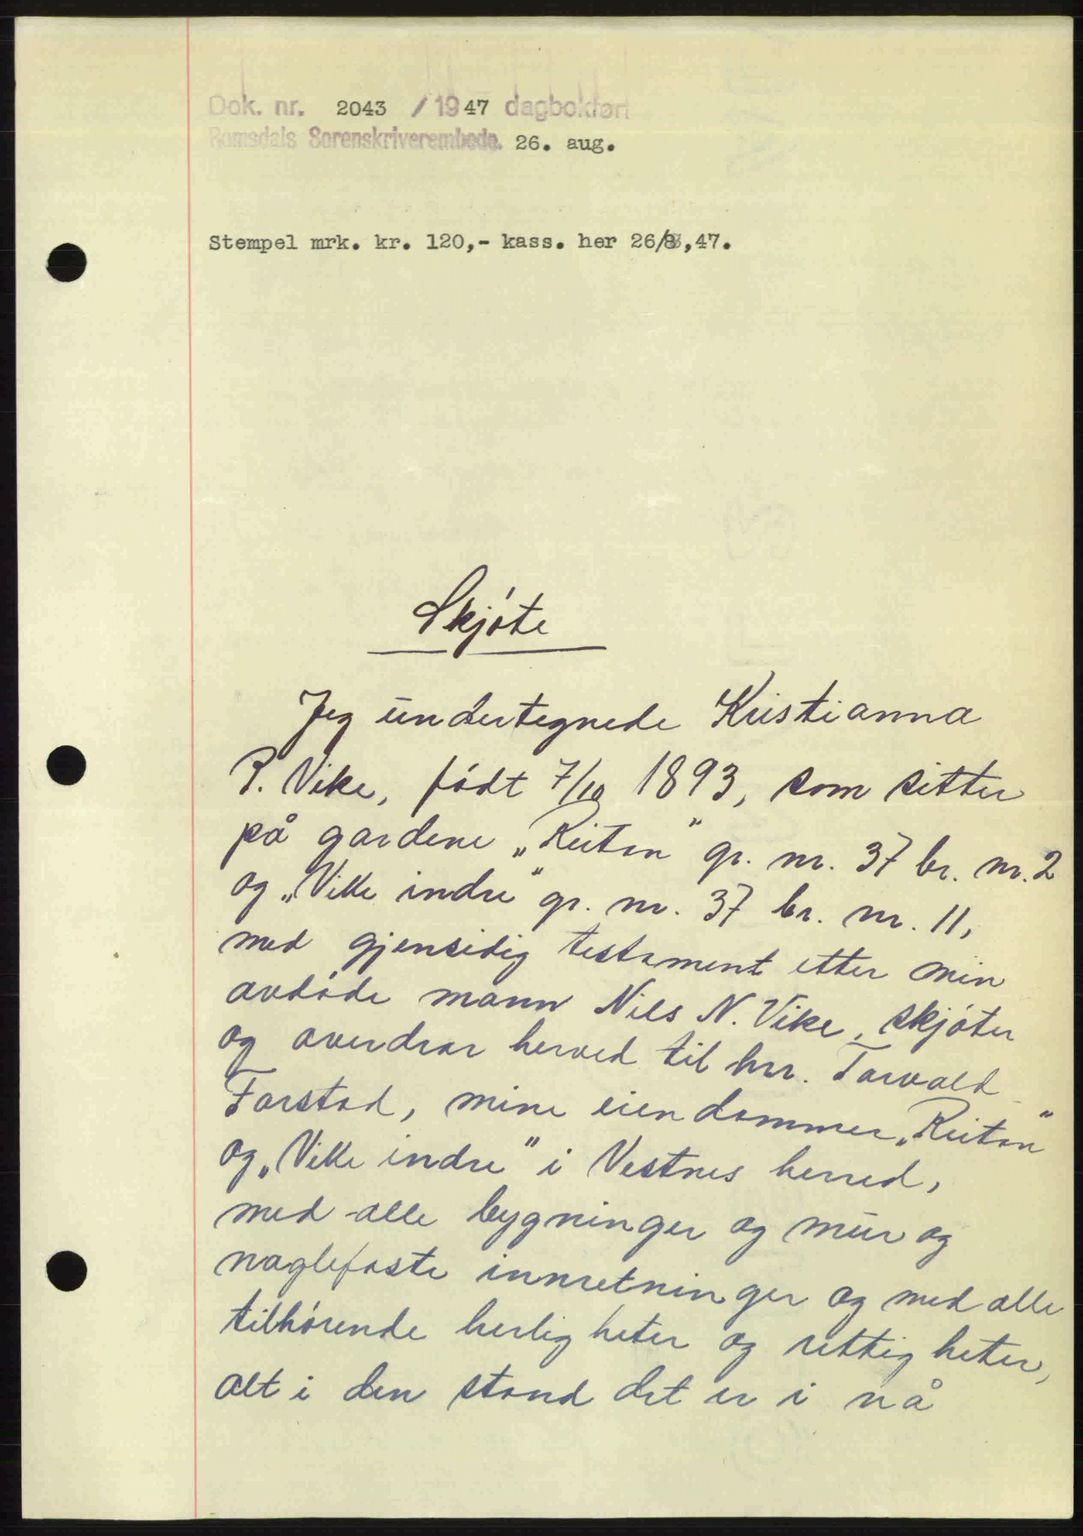 Dok. nr. 2043 / 1947 dagbokført
Romsdals Sorenskriverembede. 26. aug.
Stempel mrk. kr. 120,- kass. her 26/8,47.
Skjøte
Jeg undertegnede Kristianna
P. Vike, født 7/10 1893, som sitter
på gardene „Reiten" gr. nr. 37 br. nr. 2
og „Vike indre" gr. nr. 37 br. nr. 11,
med gjensidig testament etter min
avdøde mann Nils N. Vike, skjøter
og overdrar herved til hrr. Torvald
Farstad, mine eiendommer „Reiten"
og „Vike indre" i Vestnes herred,
med alle bygninger og mur og
naglefaste innretninger og med alle
tilhørende herligheter og rettigheter,
alt i den stand det er i nå